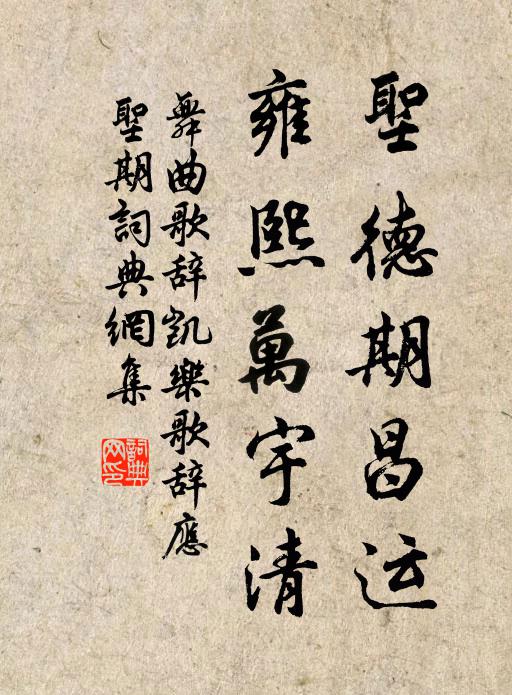 聖德期昌运
雍熙萬宇清
舞曲歌辞凯樂歌辞應
聖期詞典網集
詞典网印